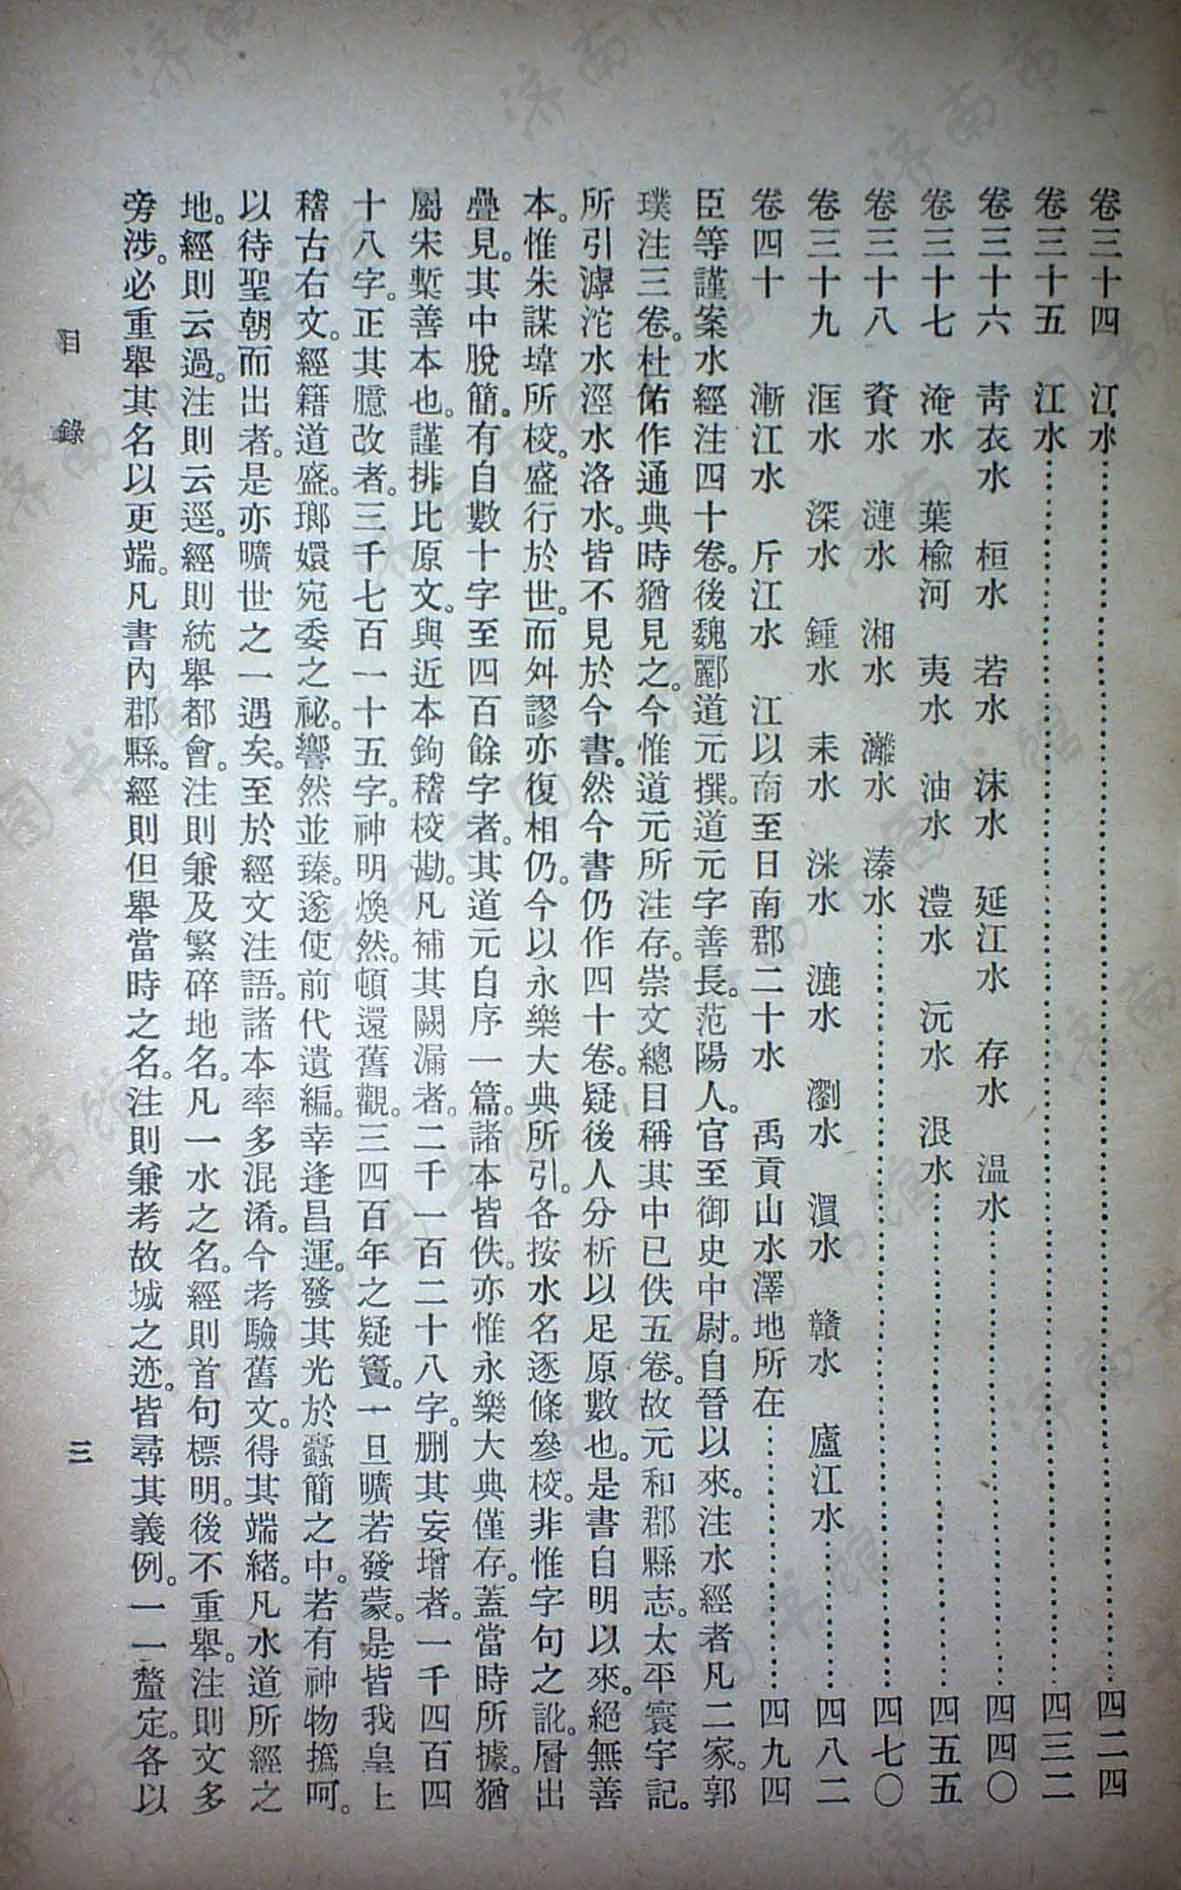 卷三十四　江水…………四二四
卷三十五　江水…………四三二
卷三十六　靑衣水　桓水　若水　沫水　延江水　存水　温水…………四四〇
卷三十七　淹水　葉榆河　夷水　油水　澧水　沅水　泿水…………四五五
卷三十八　資水　漣水　湘水　灕水　溱水…………四七〇
卷三十九　洭水　深水　鍾水　耒水　洣水　漉水　瀏水　㵋水　贛水　廬江水…………四八二
卷四十　漸江水　斤江水　江以南至日南郡二十水　禹貢山水澤地所在…………四九四
臣等謹案水經注四十卷。後魏酈道元撰。道元字善長。范陽人。官至御史中尉。自晉以來。注水經者凡二家。郭
璞注三卷。杜佑作通典時猶見之。今惟道元所注存。崇文總目稱其中已佚五卷。故元和郡縣志。太平寰宇記。
所引滹沱水涇水洛水。皆不見於今書。然今書仍作四十卷。疑後人分析以足原數也。是書自明以來。絕無善
本。惟朱謀㙔所校。盛行於世。而舛謬亦復相仍。今以永樂大典所引。各按水名逐條參校。非惟字句之訛。層出
疊見。其中脫簡。有自數十字至四百餘字者。其道元自序一篇。諸本皆佚。亦惟永樂大典僅存。蓋當時所據。猶
屬宋槧善本也。謹排比原文。與近本鉤稽校勘。凡補其闕漏者。二千一百二十八字。删其妄增者。一千四百四
十八字。正其臆改者。三千七百一十五字。神明煥然。頓還舊觀。三四百年之疑竇。一旦曠若發蒙。是皆我皇上
稽古右文。經籍道盛。瑯嬛宛委之祕。響然並臻。遂使前代遺編。幸逢昌運。發其光於蠹簡之中。若有神物撝呵。
以待聖朝而出者。是亦曠世之一遇矣。至於經文注語。諸本率多混淆。今考驗舊文。得其端緒。凡水道所經之
地。經則云過。注則云逕。經則統舉都會。注則兼及繁碎地名。凡一水之名。經則首句標明。後不重舉。注則文多
旁涉。必重舉其名以更端。凡書內郡縣。經則但舉當時之名。注則兼考故城之迹。皆尋其義例。一一釐定。各以
目錄
三
济南市图书馆